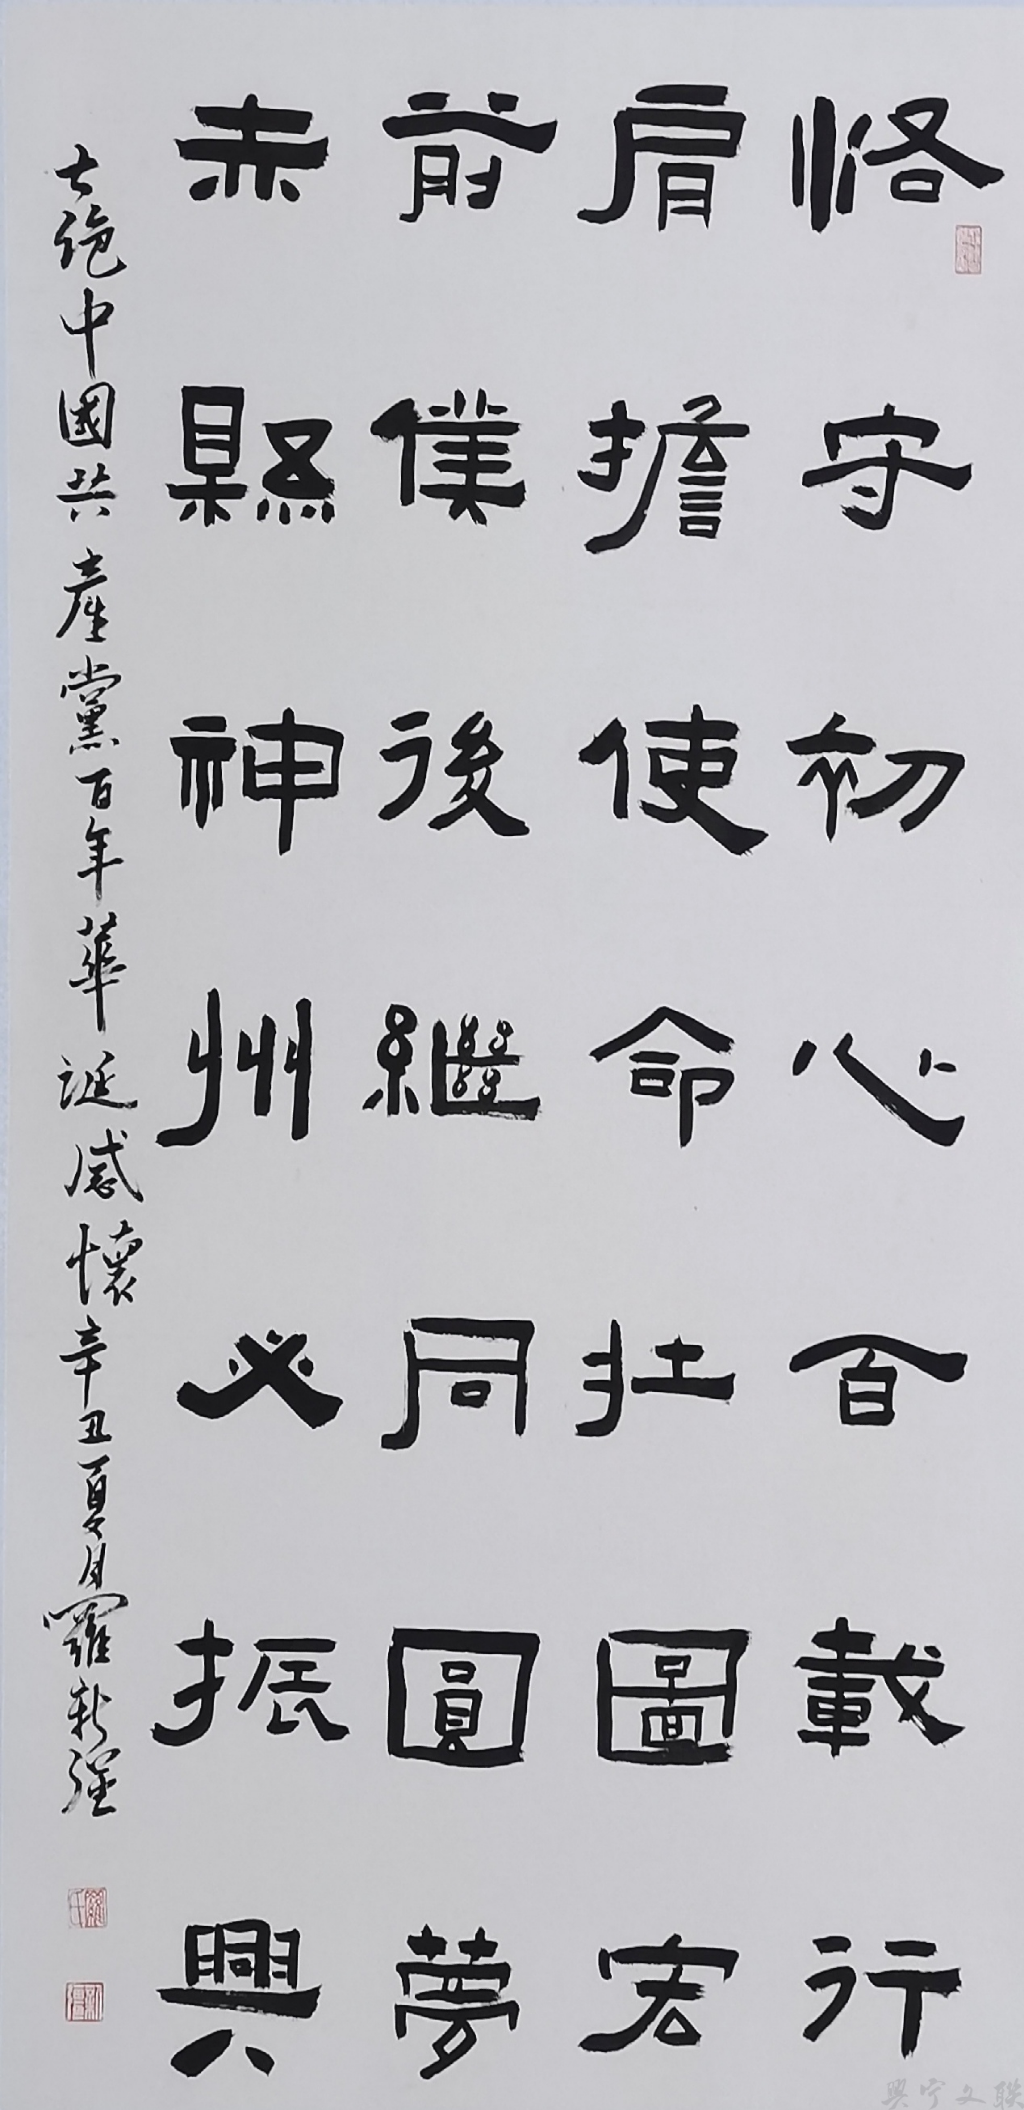 恪守初心百載行
肩擔使命壮圖宏
前僕後繼同圓夢
赤縣神州必振興
七絕中國共產黨百年華誕感懷辛丑夏月羅新強
興宁文联